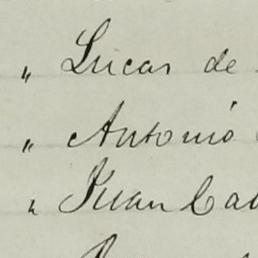 " Lucas de
" Antonio
" Juan